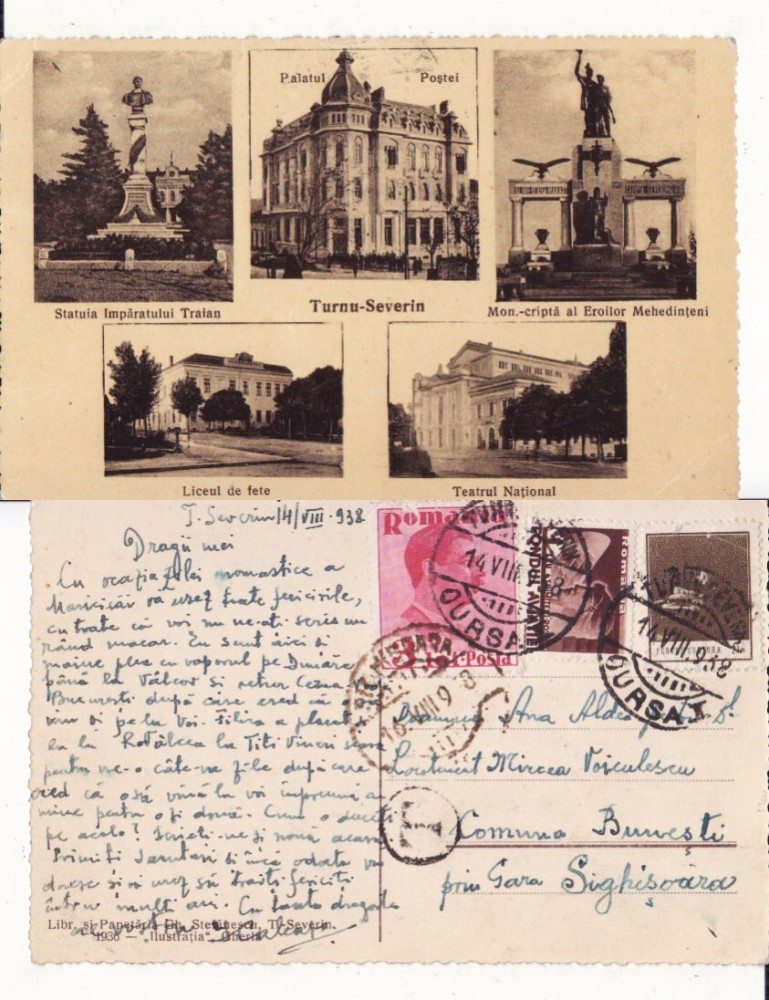 Palatul Poștei
Statuia Impăratului Traian
Turnu-Severin
Mon.-criptă al Eroilor Mehedințeni
Liceul de fete
Teatrul Național
T. Severin 14/VIII-938
Dragii mei
Cu ocazia zilei nomastice a
vă urez toate fericirile,
cu toate că voi nu ne-ați scris un
rând macar. Eu sunt aici și
maine plec cu vaporul pe Dunăre
până la Vâlcov și retur
București după care cred că
la Titi Vineri seara
pentru câte-va zile după care
cred că o să vină la voi împreună
mine pentru o zi două. Cum o duceți
pe acolo? Scrieți-ne și nouă acasă
Primiți și încă odată vă
doresc și vă urez să trăiți fericiți
întru mulți ani. Cu toată dragostea
Libr. și Papetăria Gh. Ștefănescu, T.-Severin.
1936 — „Ilustrația“, Gherla
Romania
3 Lei Posta
Romania
FONDUL AVIAȚIEI
14 VIII 938
CURSA
14 VIII 938
CURSA
16 VIII 9 8
T
Doamna Ana Aldea
Locotenent Mircea Voiculescu
Comuna Bunești
prin Gara Sighișoara